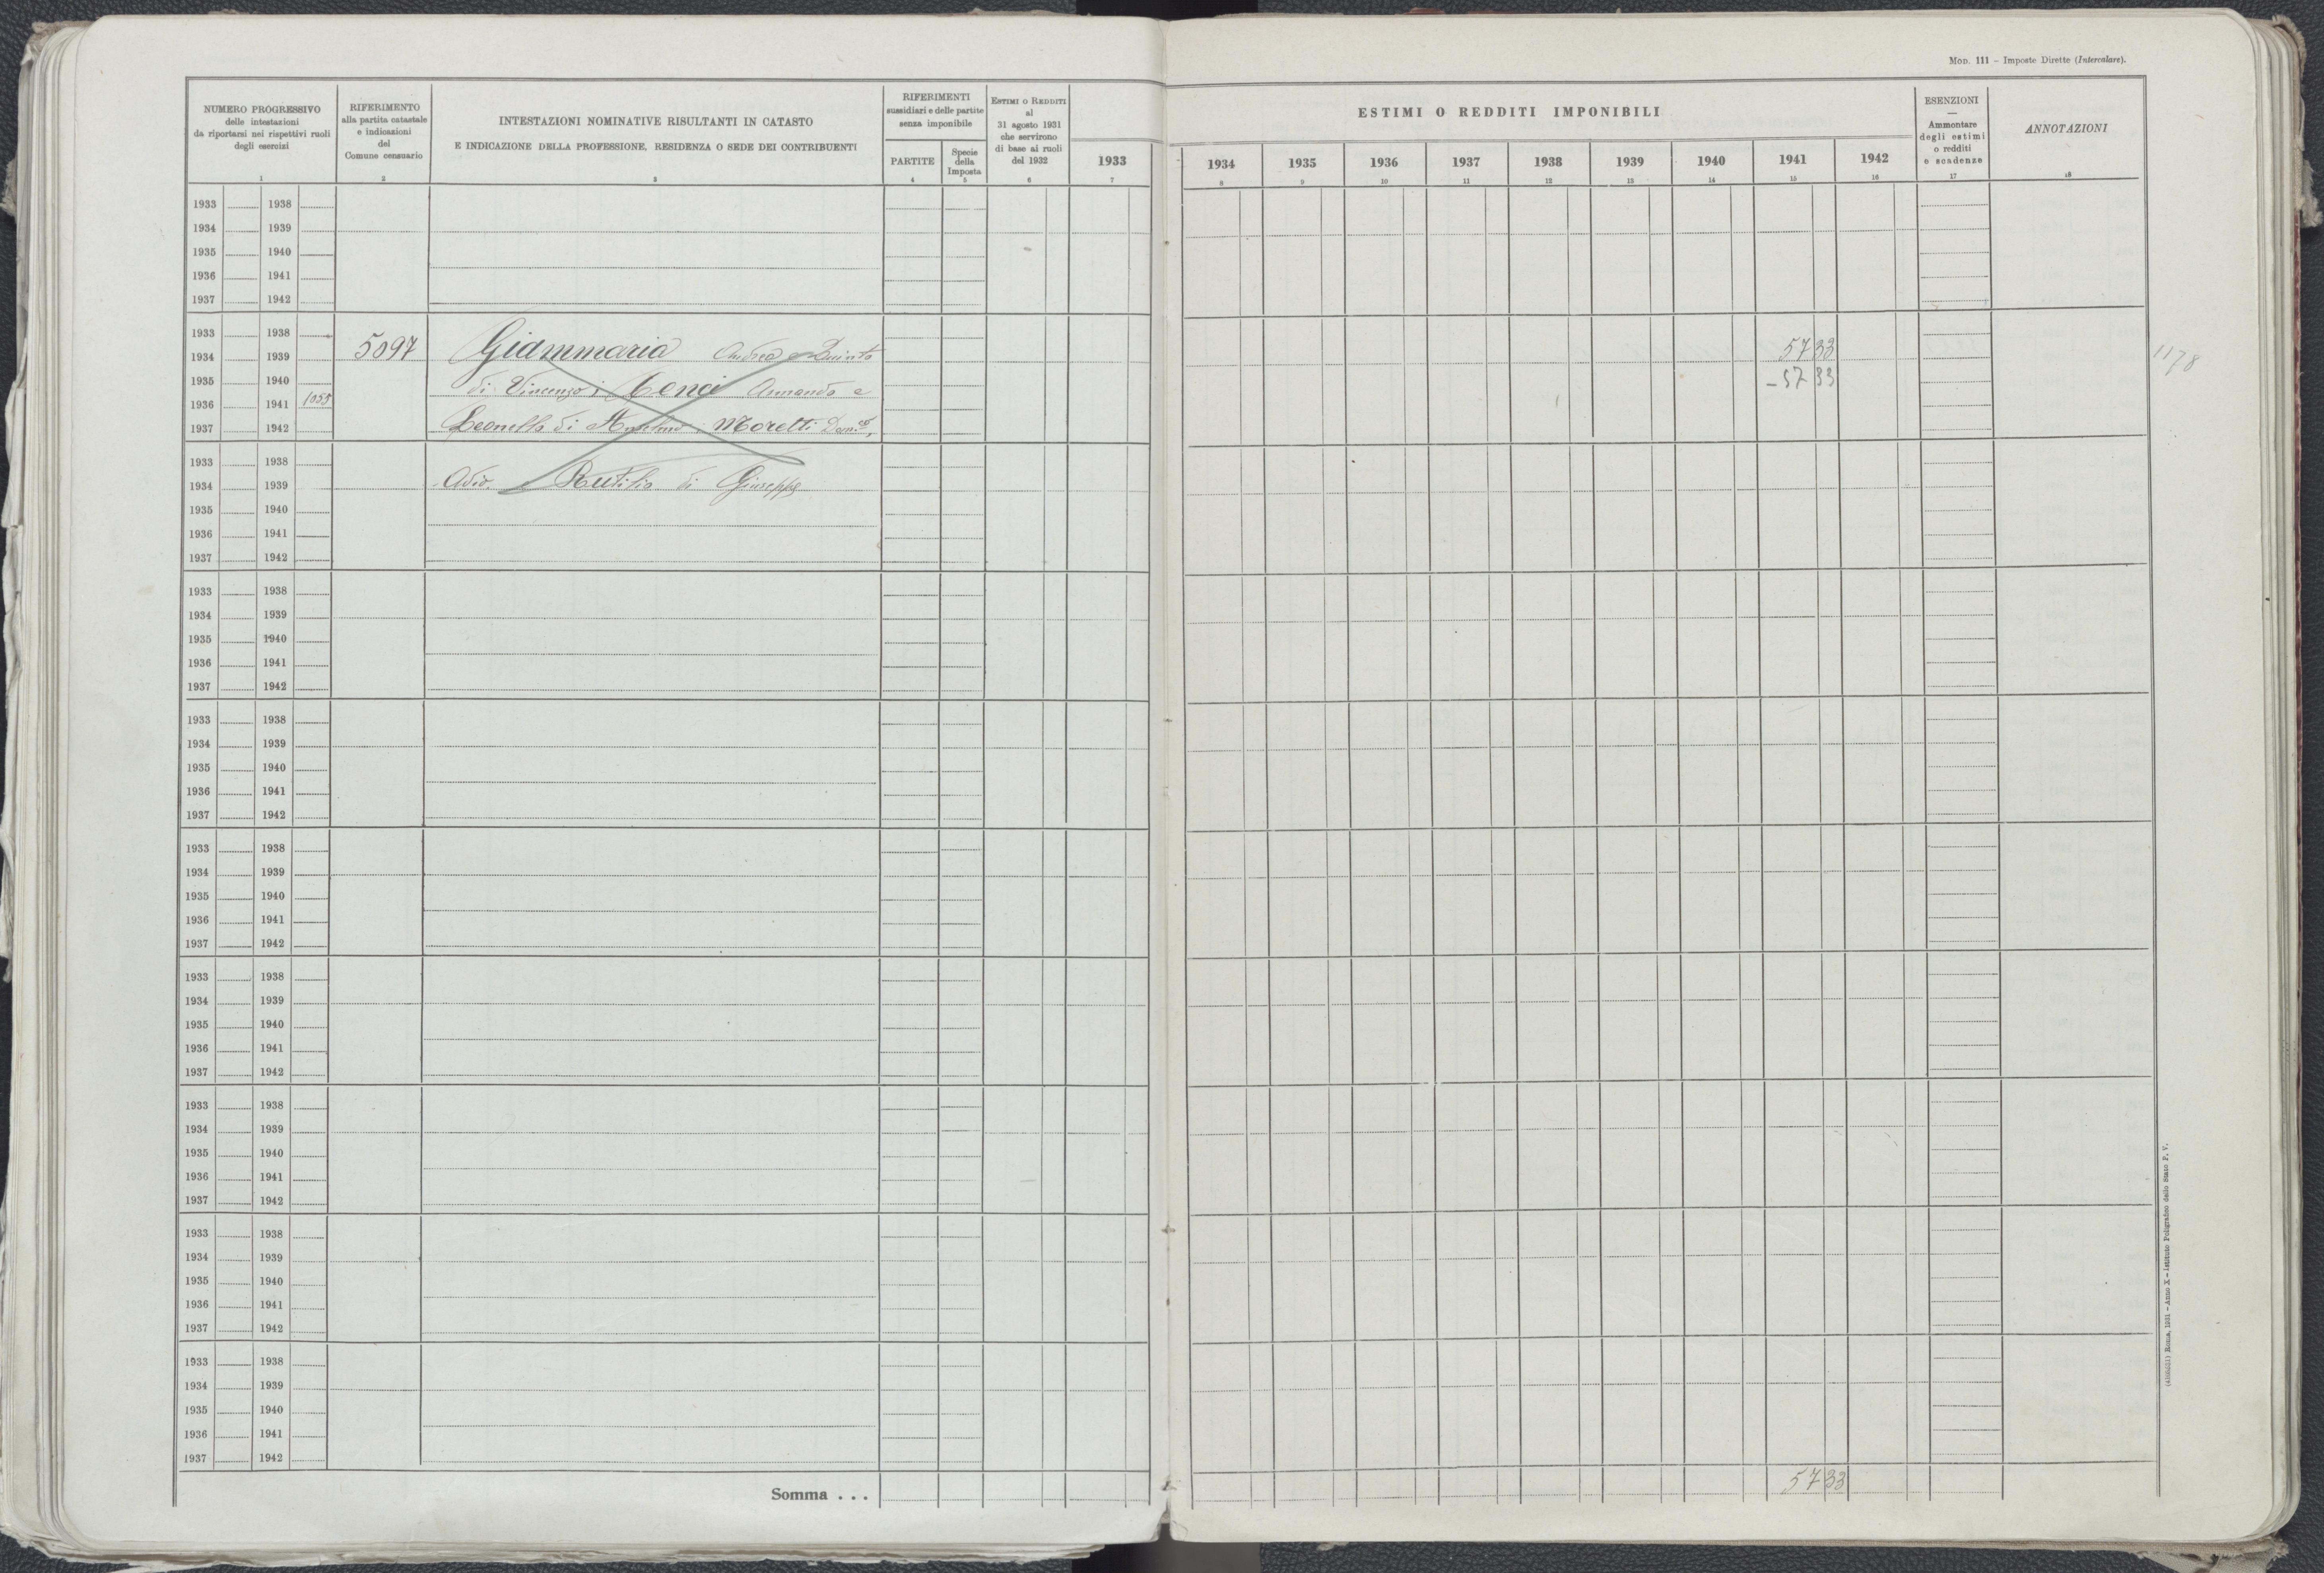 Mod. 111 – Imposte Dirette (Intercalare).
NUMERO PROGRESSIVO
delle intestazioni
da riportarsi nei rispettivi ruoli
degli esercizi
1
RIFERIMENTO
alla partita catastale
e indicazioni
del
Comune censuario
2
INTESTAZIONI NOMINATIVE RISULTANTI IN CATASTO
E INDICAZIONE DELLA PROFESSIONE, RESIDENZA O SEDE DEI CONTRIBUENTI
3
RIFERIMENTI
sussidiari e delle partite
senza imponibile
PARTITE
4
Specie
della
Imposta
5
Estimi o Redditi
al
31 agosto 1931
che servirono
di base ai ruoli
del 1932
6
ESTIMI O REDDITI IMPONIBILI
1933 1934 1935 1936 1937 1938 1939 1940 1941 1942
7 8 9 10 11 12 13 14 15 16
ESENZIONI
—
Ammontare
degli estimi
o redditi
e scadenze
17
ANNOTAZIONI
18
1933 1938
1934 1939
1935 1940
1936 1941
1937 1942
1933 1938
1934 1939 5097 Giammaria Andrea e Quinto 57 33
1935 1940 di Vincenzo; Cenci Armando e – 57 33
1936 1941 1055
1937 1942 Leonello di Moretti Dom.co,
1178
1933 1938
1934 1939 Rutilio di Giuseppe
1935 1940
1936 1941
1937 1942
1933 1938
1934 1939
1935 1940
1936 1941
1937 1942
1933 1938
1934 1939
1935 1940
1936 1941
1937 1942
1933 1938
1934 1939
1935 1940
1936 1941
1937 1942
1933 1938
1934 1939
1935 1940
1936 1941
1937 1942
1933 1938
1934 1939
1935 1940
1936 1941
1937 1942
1933 1938
1934 1939
1935 1940
1936 1941
1937 1942
1933 1938
1934 1939
1935 1940
1936 1941
1937 1942
Somma . . . 57 33
Roma, 1931 – Anno X – Istituto Poligrafico dello Stato P. V.